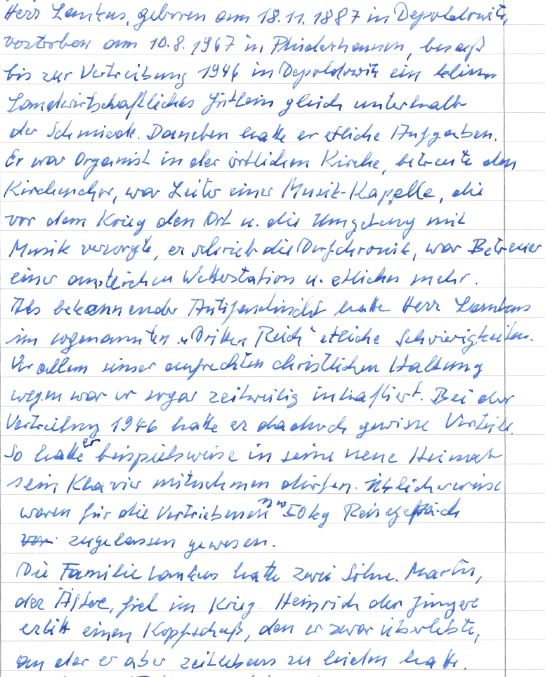 Herr Lankus, geboren am 18.11.1887 in Depoldowitz,
verstorben am 10.8.1967 in Plüderhausen, besaß
bis zur Vertreibung 1946 in Depoldowitz ein kleines
Landwirtschaftliches Gütlein gleich unterhalb
der Schmiede. Daneben hatte er etliche Aufgaben.
Er war Organist in der örtlichen Kirche, betreute den
Kirchenchor, war Leiter einer Musik-Kapelle, die
vor dem Krieg den Ort u. die Umgebung mit
Musik versorgte, er schrieb die Dorfchronik, war Betreuer
einer amtlichen Wetterstation u. etliches mehr.
Als bekennender Antifaschist hatte Herr Lankus
im sogenannten "Dritten Reich" etliche Schwierigkeiten.
Vor allem seiner aufrechten christlichen Haltung
wegen war er sogar zeitweilig inhaftiert. Bei der
Vertreibung 1946 hatte er dadurch gewisse Vorteile.
So hatte er beispielsweise in seine neue Heimat
sein Klavier mitnehmen dürfen. Üblicherweise
waren für die Vertriebenen nur 50kg Reisegepäck
zugelassen gewesen.
Die Familie Lankus hatte zwei Söhne. Martin,
der Ältere, fiel im Krieg. Heinrich der Jüngere
erlitt einen Kopfschuß, den er zwar überlebte,
an der er aber zeitlebens zu leiden hatte.